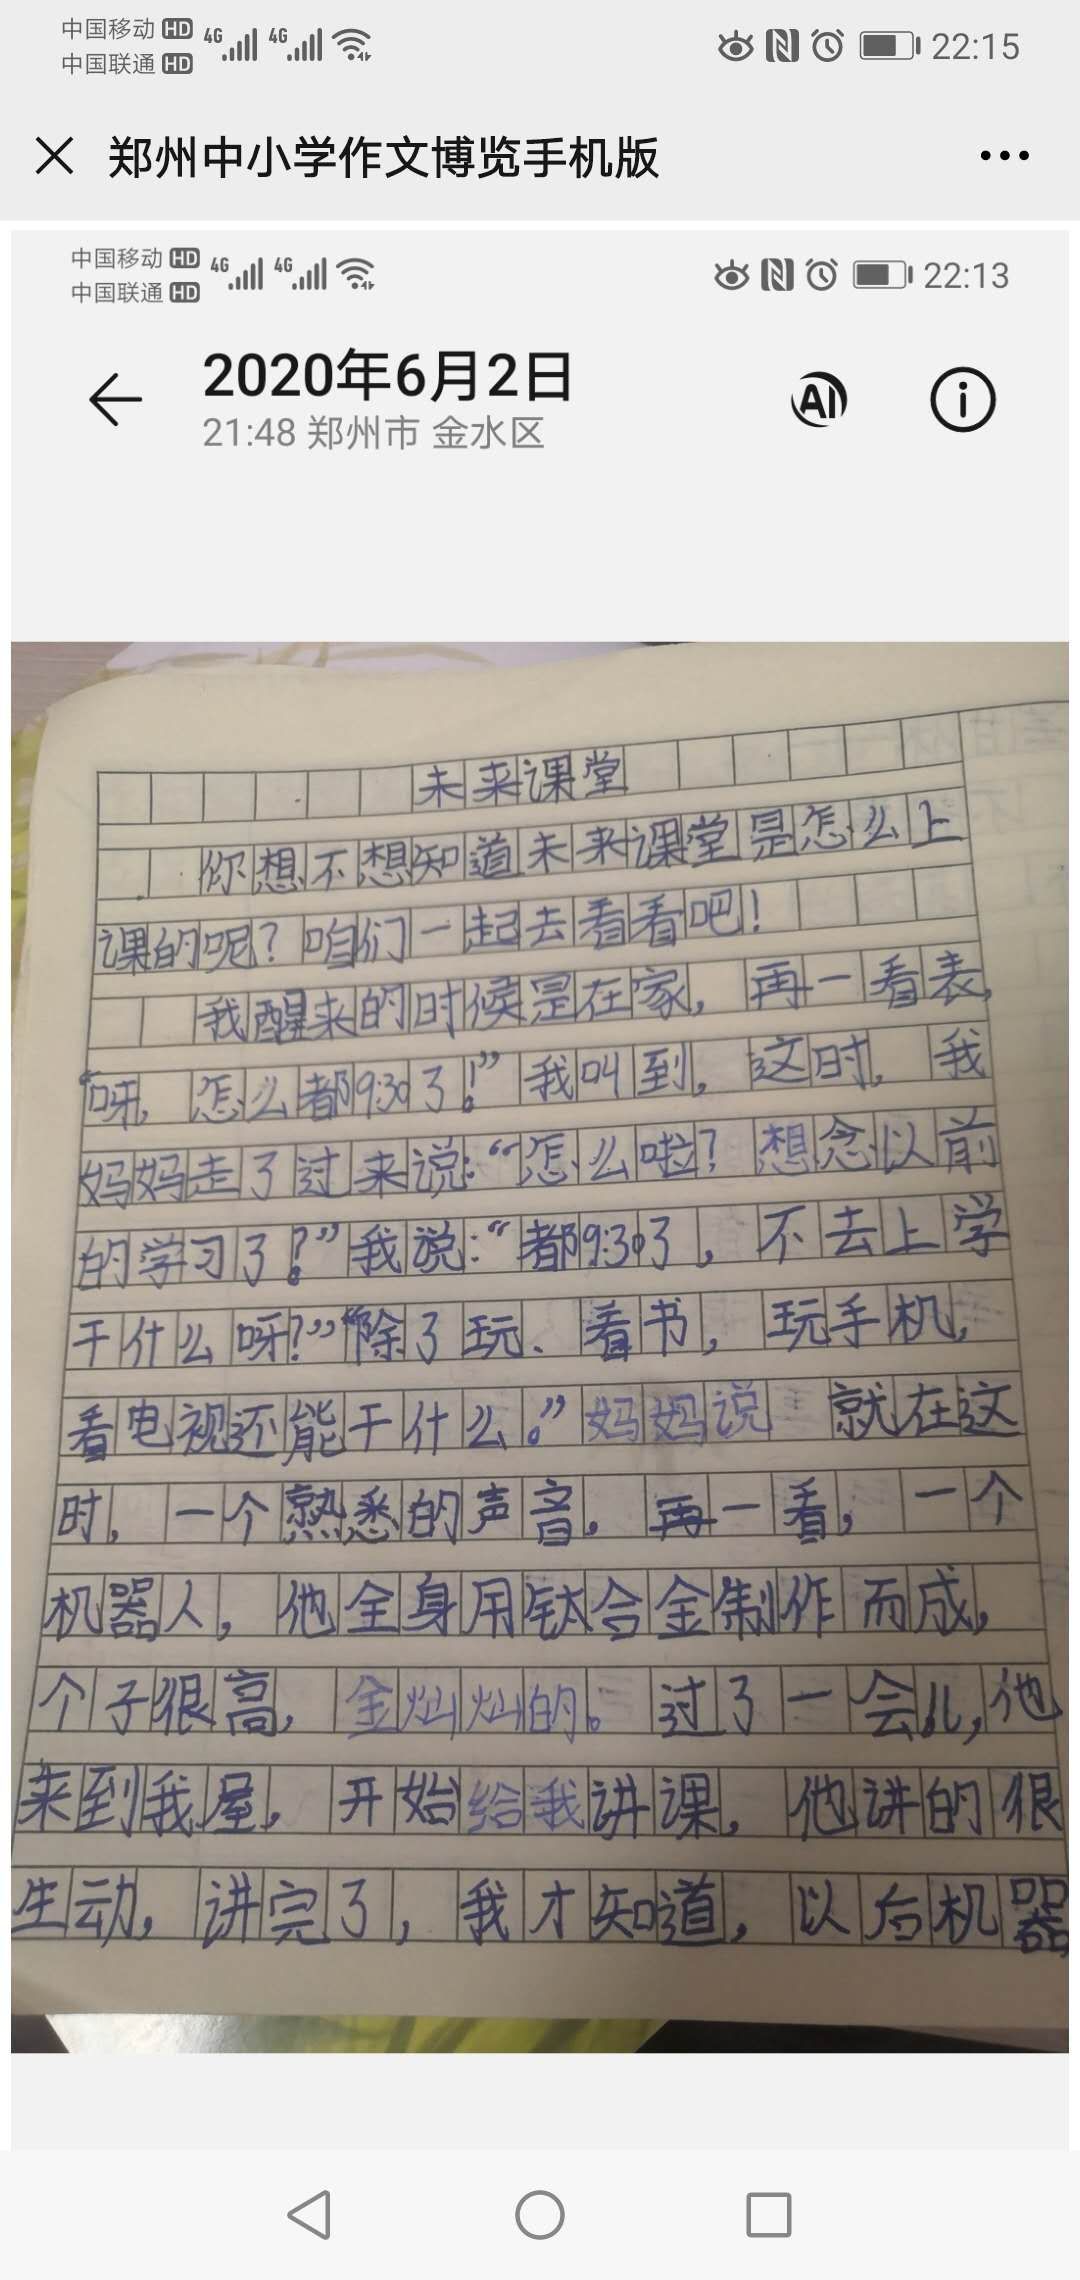 中国移动 HD 4G 4G 22:15
中国联通 HD
郑州中小学作文博览手机版
中国移动 HD 4G 4G 22:13
中国联通 HD
2020年6月2日
AI
21:48 郑州市 金水区
未来课堂
你想不想知道未来课堂是怎么上
课的呢？咱们一起去看看吧！
我醒来的时候是在家，再一看表，
“呀，怎么都9:30了！”我叫到，这时，我
妈妈走了过来说：“怎么啦？想念以前
的学习了？”我说：“都9:30了，不去上学
干什么呀？”“除了玩、看书，玩手机，
看电视还能干什么。”妈妈说 就在这
时，一个熟悉的声音，再一看，一个
机器人，他全身用钛合金制作而成，
个子很高，金灿灿的。过了一会儿，他
来到我屋，开始给我讲课，他讲的很
生动，讲完了，我才知道，以后机器